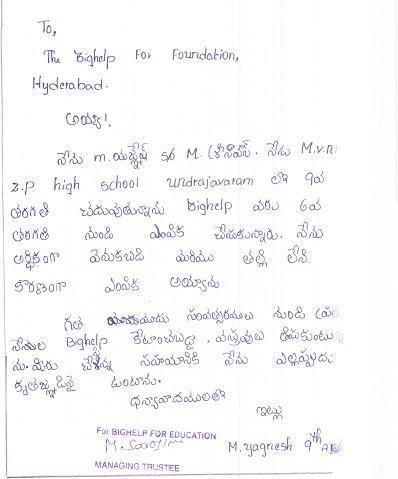 To,
The Bighelp For Foundation,
Hyderabad.
అయ్యా!
నేను m. యజ్ఞేష్ S/o M. శ్రీనివాస్. నేను M.v.n
z.p high school undrajavaram లో 9వ
తరగతి చదువుతున్నాను Bighelp వారు 6వ
తరగతి నుండి ఎంపిక చేసుకున్నారు. నేను
ఆర్థికంగా వెనుకబడి మరియు తల్లి లేని
కారణంగా ఎంపిక అయ్యాను.
గత మూడు సంవత్సరముల నుండి
Bighelp వస్తువులు తీసుకుంటు
ను. మీరు చేసిన సహాయానికి నేను ఎల్లప్పుడు
కృతజ్ఞుడినై ఉంటాను.
ధన్యవాదములతో
ఇట్లు
For BIGHELP FOR EDUCATION
MANAGING TRUSTEE
M. Yagnesh 9th